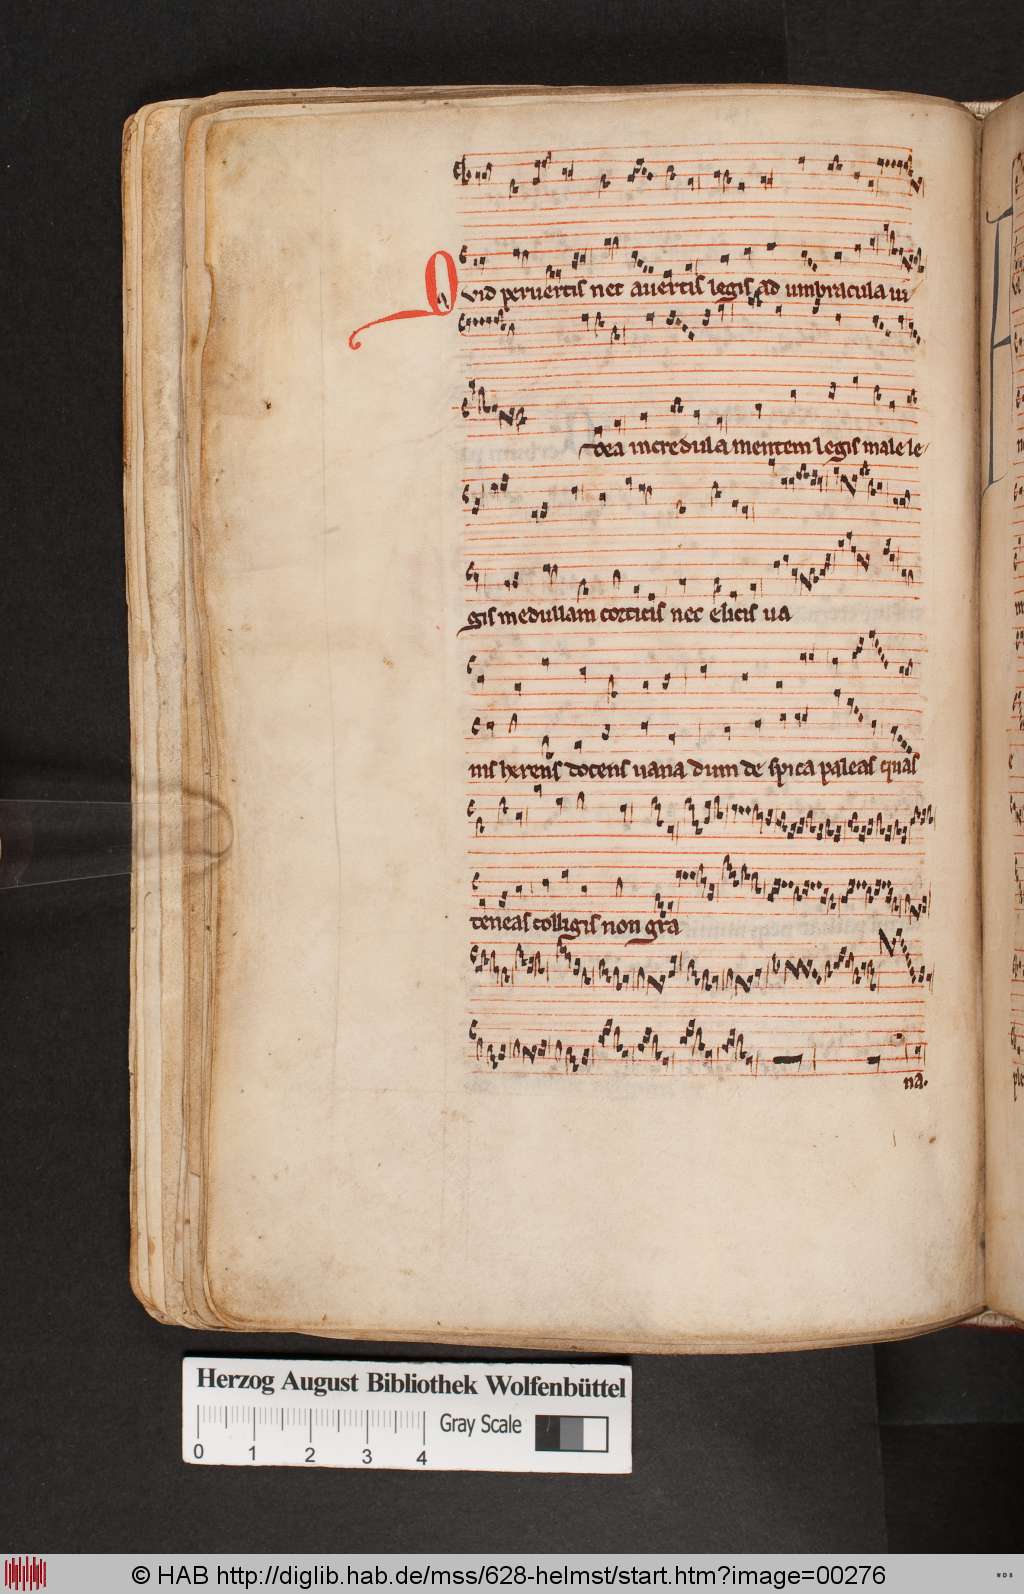 Quid pervertis nec avertis legis ad umbracula vi
dea incredula mentem legis male le-
gis medullam corticis nec elicis va
nis herens docens vana dum de spica paleas quas
teneas colligis non gra
na.
Herzog August Bibliothek Wolfenbüttel
Gray Scale
0 1 2 3 4
© HAB http://diglib.hab.de/mss/628-helmst/start.htm?image=00276